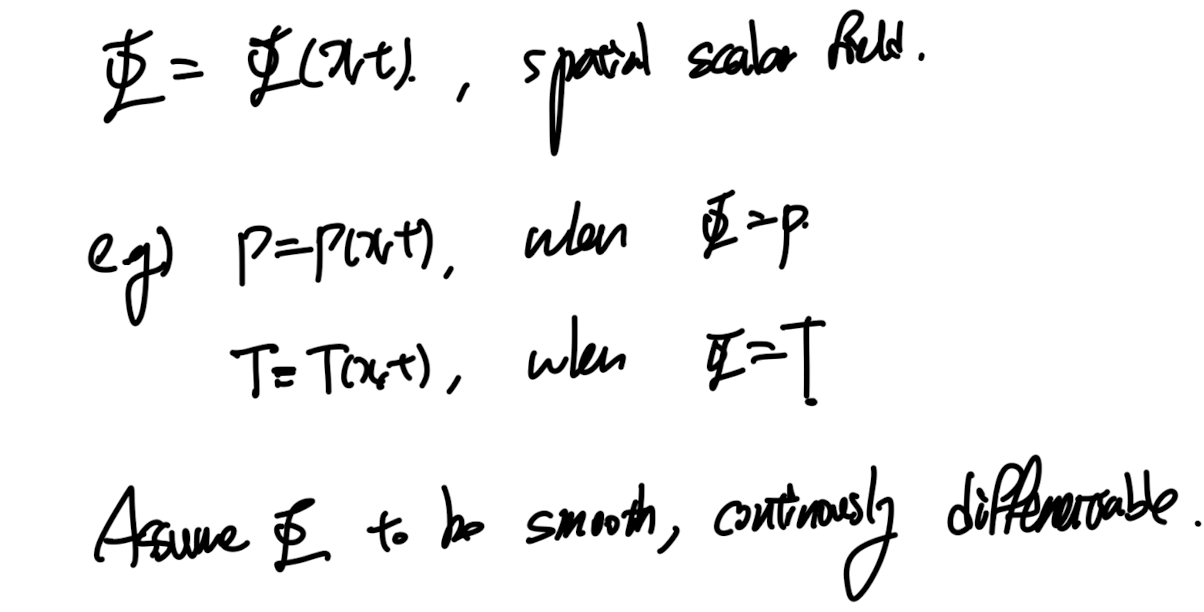 Φ = Φ(x,t), spatial scalar field.
e.g) p=p(x,t), when Φ=p.
T=T(x,t), when Φ=T.
Assume Φ to be smooth, continously differentiable.